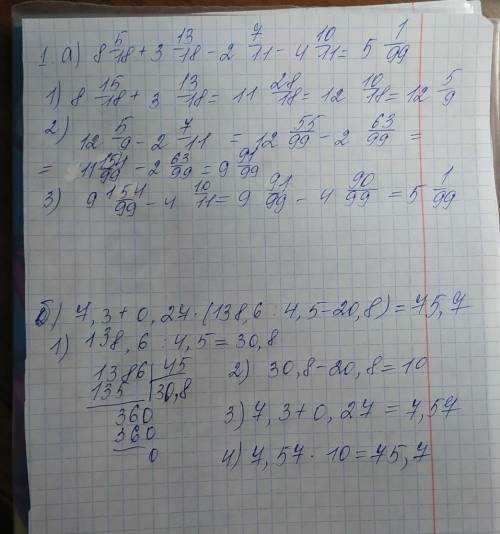 1. а) 8 5/18 + 3 13/18 - 2 7/11 - 4 10/11 = 5 1/99
1) 8 15/18 + 3 13/18 = 11 28/18 = 12 10/18 = 12 5/9
2) 12 5/9 - 2 7/11 = 12 55/99 - 2 63/99 =
= 11 154/99 - 2 63/99 = 9 91/99
3) 9 154/99 - 4 10/11 = 9 91/99 - 4 90/99 = 5 1/99
б) 7,3 + 0,27 · (138,6 : 4,5 - 20,8) = 75,7
1) 138,6 : 4,5 = 30,8
1386 | 45
135 | 30,8
360
360
0
2) 30,8 - 20,8 = 10
3) 7,3 + 0,27 = 7,57
4) 7,57 · 10 = 75,7